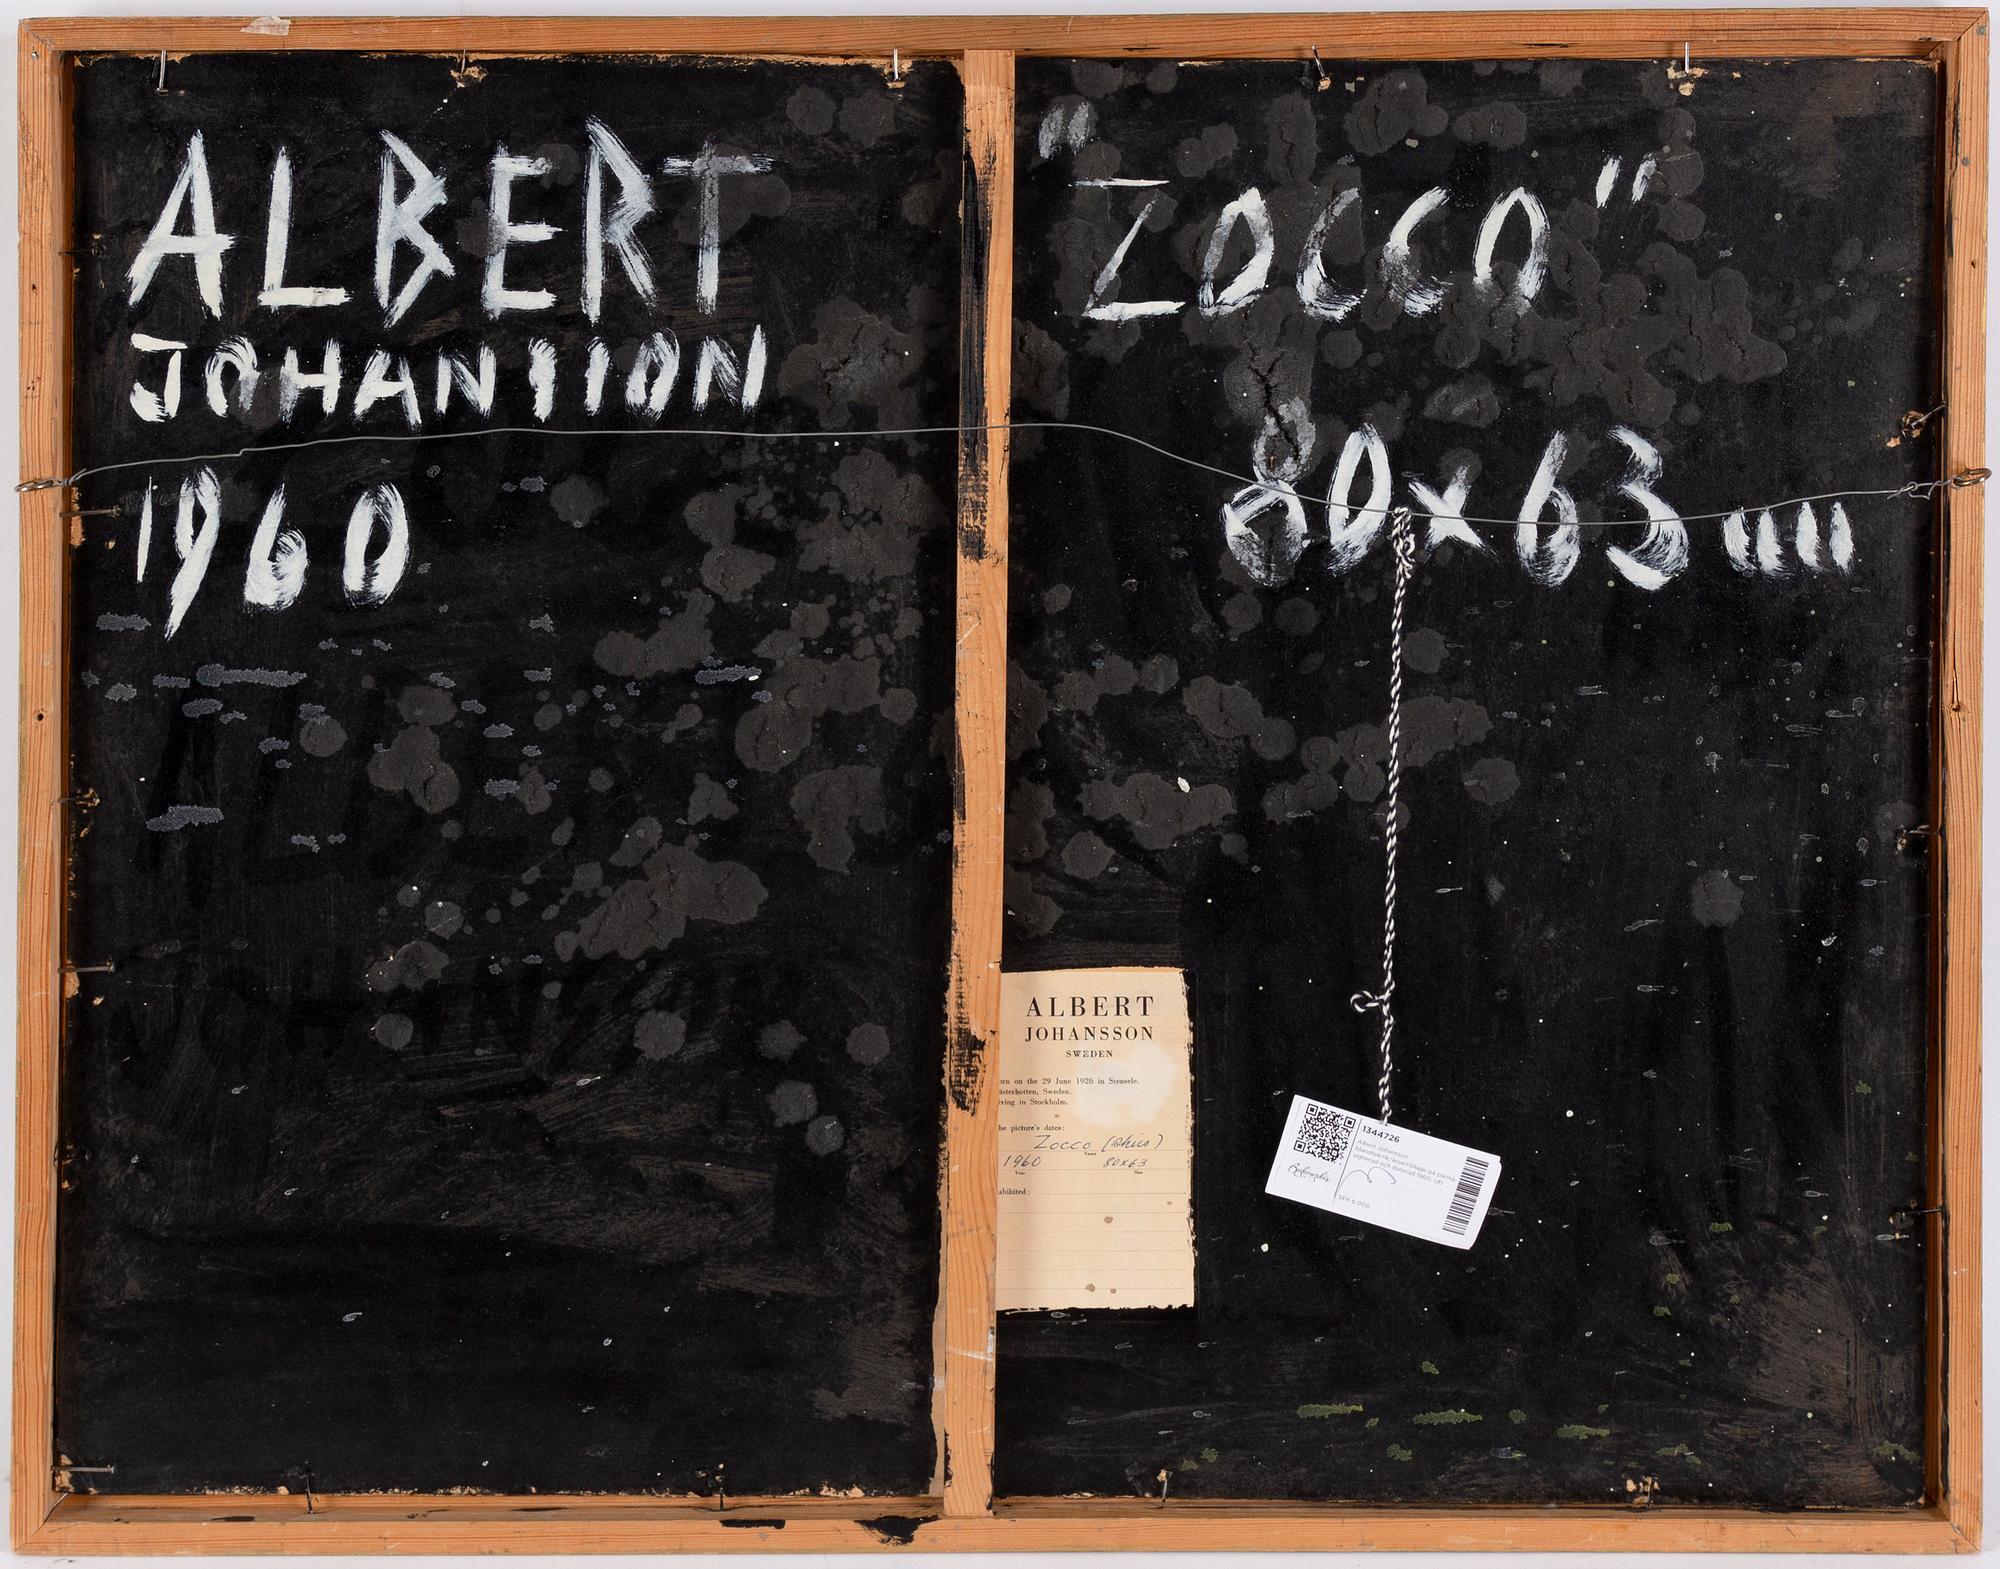 ALBERT
JOHANSSON
1960
"ZOCCO"
80x63 cm
ALBERT
JOHANSSON
SWEDEN
orn on the 29 June 1926 in Stensele.
ästerbotten, Sweden.
iving in Stockholm.
he picture's dates:
Zocco
Name
1960 80x63
Year Size
xhibited:
1344726
Albert Johansson,
blandteknik/assemblage på pannå,
signerad och daterad 1960, (d)
Bukowskis
SEK 6 000